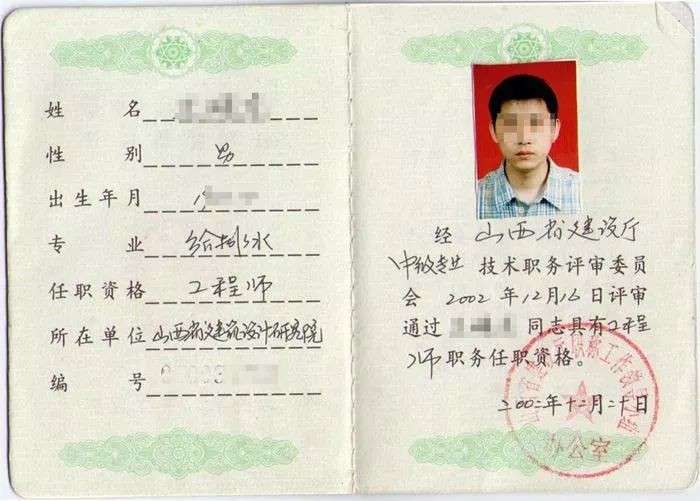 姓 名
性 别 男
出生年月
专 业 给排水
任职资格 工程师
所在单位 山西省建筑设计研究院
编 号
经 山西省建设厅
中级专业 技术职务评审委员
会 2002 年 12 月 16 日评审
通过 同志具有 工程
师 职务任职资格。
二00二年十二月二十日
办公室